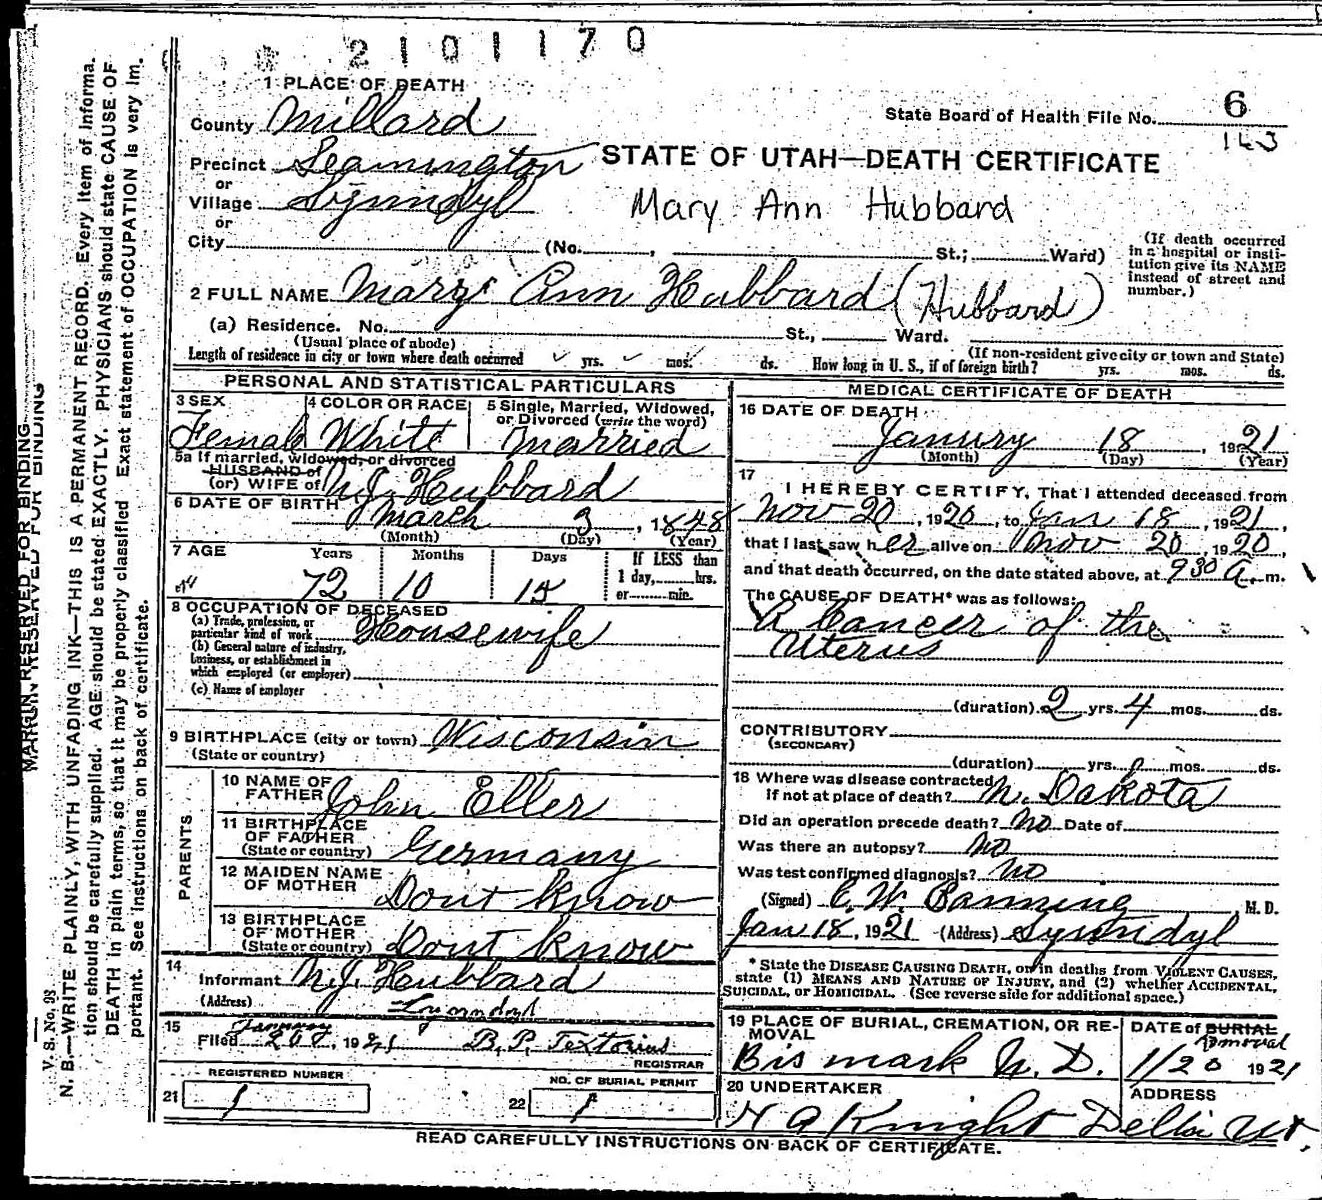 2101170
1 PLACE OF DEATH
County Millard
State Board of Health File No. 6
143
Precinct Leamington
STATE OF UTAH—DEATH CERTIFICATE
or
Village Lynndyl
Mary Ann Hubbard
or
City (No. , St.; Ward)
(If death occurred in a hospital or institution give its NAME instead of street and number.)
2 FULL NAME Mary Ann Hubbard (Hubbard)
(a) Residence. No. St., Ward.
(Usual place of abode) (If non-resident give city or town and State)
Length of residence in city or town where death occurred yrs. mos. ds. How long in U. S., if of foreign birth? yrs. mos. ds.
PERSONAL AND STATISTICAL PARTICULARS
3 SEX Female
4 COLOR OR RACE White
5 Single, Married, Widowed, or Divorced (write the word) Married
5a If married, widowed, or divorced
HUSBAND of
(or) WIFE of N.J. Hubbard
6 DATE OF BIRTH March 3, 1848
(Month) (Day) (Year)
7 AGE Years Months Days If LESS than
72 10 15 1 day, hrs.
or min.
8 OCCUPATION OF DECEASED
(a) Trade, profession, or particular kind of work Housewife
(b) General nature of industry, business, or establishment in which employed (or employer)
(c) Name of employer
9 BIRTHPLACE (city or town) Wisconsin
(State or country)
PARENTS
10 NAME OF FATHER John Eller
11 BIRTHPLACE OF FATHER (State or country) Germany
12 MAIDEN NAME OF MOTHER Dont know
13 BIRTHPLACE OF MOTHER (State or country) Dont know
14
Informant N.J. Hubbard
(Address) Lynndyl
15
Filed January 20, 1921 B.P. Textorius
REGISTRAR
REGISTERED NUMBER
21 1
NO. OF BURIAL PERMIT
22 1
MEDICAL CERTIFICATE OF DEATH
16 DATE OF DEATH
Janury 18, 1921
(Month) (Day) (Year)
17
I HEREBY CERTIFY, That I attended deceased from
Nov 20, 1920, to Jan 18, 1921,
that I last saw her alive on Nov 20, 1920,
and that death occurred, on the date stated above, at 9 30 A. m.
The CAUSE OF DEATH* was as follows:
A Cancer of the
Uterus
(duration) 2 yrs. 4 mos. ds.
CONTRIBUTORY
(SECONDARY)
(duration) yrs. mos. ds.
18 Where was disease contracted
if not at place of death? N. Dakota
Did an operation precede death? No Date of
Was there an autopsy? no
Was test confirmed diagnosis? no
(Signed) C.W. Banning M. D.
Jan 18, 1921 (Address) Lynndyl
* State the DISEASE CAUSING DEATH, or in deaths from VIOLENT CAUSES,
state (1) MEANS AND NATURE OF INJURY, and (2) whether ACCIDENTAL,
SUICIDAL, or HOMICIDAL. (See reverse side for additional space.)
19 PLACE OF BURIAL, CREMATION, OR REMOVAL
Bismark N. D.
DATE of BURIAL
Removal
1/20 1921
20 UNDERTAKER
N A Knight
ADDRESS
Delta Ut.
READ CAREFULLY INSTRUCTIONS ON BACK OF CERTIFICATE.
MARGIN RESERVED FOR BINDING
V. S. No. 98
N. B.—WRITE PLAINLY, WITH UNFADING INK—THIS IS A PERMANENT RECORD. Every item of informa-
tion should be carefully supplied. AGE should be stated EXACTLY. PHYSICIANS should state CAUSE OF
DEATH in plain terms, so that it may be properly classified. Exact statement of OCCUPATION is very im-
portant. See instructions on back of certificate.